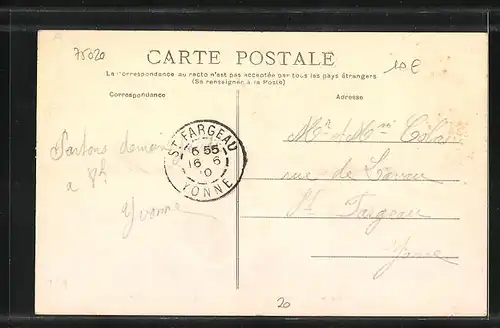 75020
10 €
CARTE POSTALE
La correspondance au recto n'est pas acceptée par tous les pays étrangers
(Se renseigner à la Poste)
Correspondance
Adresse
Partons demain
a 8h
Yvonne
ST FARGEAU
6 55
16 6
10
YONNE
rue de
St Fargeau
Yonne
20